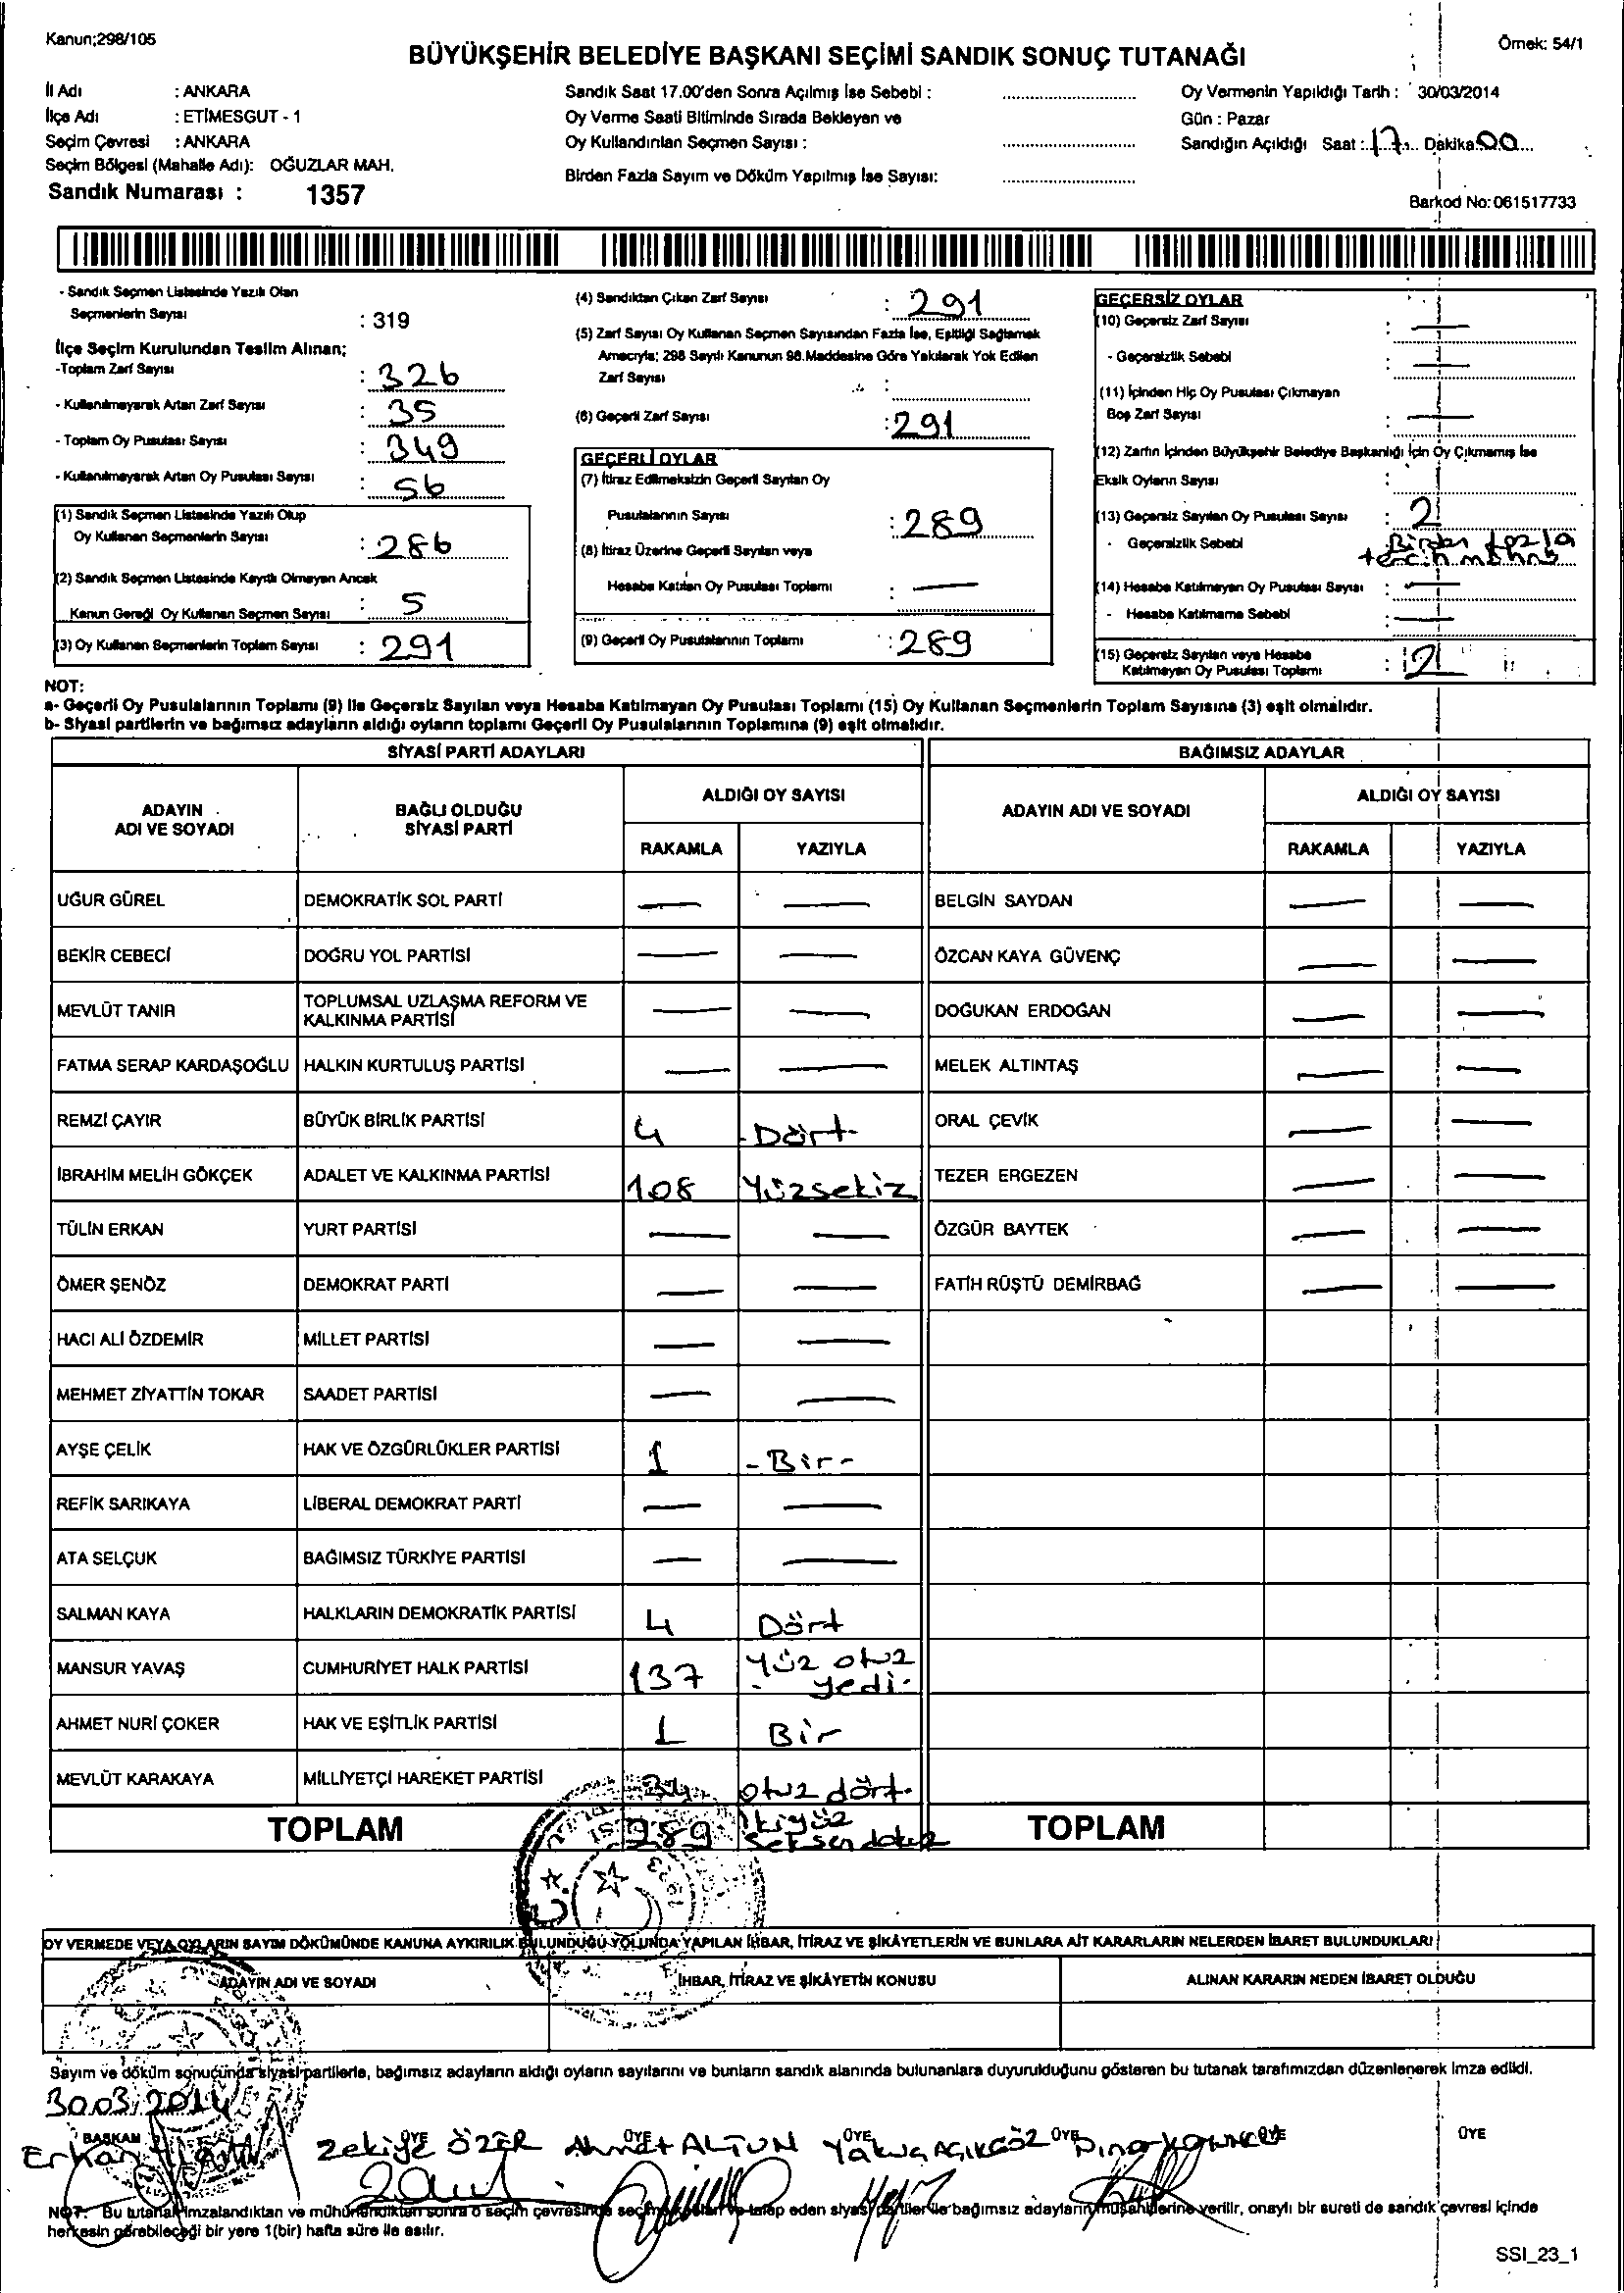 Kanun;298/105
Örnek: 54/1
BÜYÜKŞEHİR BELEDİYE BAŞKANI SEÇİMİ SANDIK SONUÇ TUTANAĞI
İl Adı : ANKARA
İlçe Adı : ETİMESGUT - 1
Seçim Çevresi : ANKARA
Seçim Bölgesi (Mahalle Adı): OĞUZLAR MAH.
Sandık Numarası : 1357
Sandık Saat 17.00'den Sonra Açılmış İse Sebebi :
Oy Verme Saati Bitiminde Sırada Bekleyen ve
Oy Kullandırılan Seçmen Sayısı :
Birden Fazla Sayım ve Döküm Yapılmış İse Sayısı:
Oy Vermenin Yapıldığı Tarih : 30/03/2014
Gün : Pazar
Sandığın Açıldığı Saat : 17 Dakika 00
Barkod No: 061517733
- Sandık Seçmen Listesinde Yazılı Olan
Seçmenlerin Sayısı : 319
İlçe Seçim Kurulundan Teslim Alınan;
-Toplam Zarf Sayısı : 326
- Kullanılmayarak Artan Zarf Sayısı : 35
- Toplam Oy Pusulası Sayısı : 349
- Kullanılmayarak Artan Oy Pusulası Sayısı : 56
(1) Sandık Seçmen Listesinde Yazılı Olup
Oy Kullanan Seçmenlerin Sayısı : 286
(2) Sandık Seçmen Listesinde Kayıtlı Olmayan Ancak
Kanun Gereği Oy Kullanan Seçmen Sayısı : 5
(3) Oy Kullanan Seçmenlerin Toplam Sayısı : 291
(4) Sandıktan Çıkan Zarf Sayısı : 291
(5) Zarf Sayısı Oy Kullanan Seçmen Sayısından Fazla İse, Eşitliği Sağlamak
Amacıyla; 298 Sayılı Kanunun 98.Maddesine Göre Yakılarak Yok Edilen
Zarf Sayısı :
(6) Geçerli Zarf Sayısı : 291
GEÇERLİ OYLAR
(7) İtiraz Edilmeksizin Geçerli Sayılan Oy
Pusulalarının Sayısı : 289
(8) İtiraz Üzerine Geçerli Sayılan veya
Hesaba Katılan Oy Pusulası Toplamı : —
(9) Geçerli Oy Pusulalarının Toplamı : 289
GEÇERSİZ OYLAR
(10) Geçersiz Zarf Sayısı : —
- Geçersizlik Sebebi : —
(11) İçinden Hiç Oy Pusulası Çıkmayan
Boş Zarf Sayısı : —
(12) Zarfın İçinden Büyükşehir Belediye Başkanlığı İçin Oy Çıkmamış İse
Eksik Oyların Sayısı :
(13) Geçersiz Sayılan Oy Pusulası Sayısı : 2
- Geçersizlik Sebebi : Birden fazla
(14) Hesaba Katılmayan Oy Pusulası Sayısı : —
- Hesaba Katılmama Sebebi : —
(15) Geçersiz Sayılan veya Hesaba
Katılmayan Oy Pusulası Toplamı : 2
NOT:
a- Geçerli Oy Pusulalarının Toplamı (9) ile Geçersiz Sayılan veya Hesaba Katılmayan Oy Pusulası Toplamı (15) Oy Kullanan Seçmenlerin Toplam Sayısına (3) eşit olmalıdır.
b- Siyasi partilerin ve bağımsız adayların aldığı oyların toplamı Geçerli Oy Pusulalarının Toplamına (9) eşit olmalıdır.
SİYASİ PARTİ ADAYLARI
BAĞIMSIZ ADAYLAR
ADAYIN ADI VE SOYADI
BAĞLI OLDUĞU SİYASİ PARTİ
ALDIĞI OY SAYISI
RAKAMLA YAZIYLA
ADAYIN ADI VE SOYADI
ALDIĞI OY SAYISI
RAKAMLA YAZIYLA
UĞUR GÜREL DEMOKRATİK SOL PARTİ — — BELGİN SAYDAN — —
BEKİR CEBECİ DOĞRU YOL PARTİSİ — — ÖZCAN KAYA GÜVENÇ — —
MEVLÜT TANIR TOPLUMSAL UZLAŞMA REFORM VE KALKINMA PARTİSİ — — DOĞUKAN ERDOĞAN — —
FATMA SERAP KARDAŞOĞLU HALKIN KURTULUŞ PARTİSİ — — MELEK ALTINTAŞ — —
REMZİ ÇAYIR BÜYÜK BİRLİK PARTİSİ 4 -Dört- ORAL ÇEVİK — —
İBRAHİM MELİH GÖKÇEK ADALET VE KALKINMA PARTİSİ 108 Yüzsekiz TEZER ERGEZEN — —
TÜLİN ERKAN YURT PARTİSİ — — ÖZGÜR BAYTEK — —
ÖMER ŞENÖZ DEMOKRAT PARTİ — — FATİH RÜŞTÜ DEMİRBAĞ — —
HACI ALİ ÖZDEMİR MİLLET PARTİSİ — —
MEHMET ZİYATTİN TOKAR SAADET PARTİSİ — —
AYŞE ÇELİK HAK VE ÖZGÜRLÜKLER PARTİSİ 1 -Bir-
REFİK SARIKAYA LİBERAL DEMOKRAT PARTİ — —
ATA SELÇUK BAĞIMSIZ TÜRKİYE PARTİSİ — —
SALMAN KAYA HALKLARIN DEMOKRATİK PARTİSİ 4 Dört
MANSUR YAVAŞ CUMHURİYET HALK PARTİSİ 137 Yüz otuz yedi-
AHMET NURİ ÇOKER HAK VE EŞİTLİK PARTİSİ 1 Bir
MEVLÜT KARAKAYA MİLLİYETÇİ HAREKET PARTİSİ 34 otuz dört-
TOPLAM 289 ikiyüz seksen dokuz TOPLAM
OY VERMEDE VEYA OYLARIN SAYIM DÖKÜMÜNDE KANUNA AYKIRILIK BULUNDUĞU YOLUNDA YAPILAN İHBAR, İTİRAZ VE ŞİKÂYETLERİN VE BUNLARA AİT KARARLARIN NELERDEN İBARET BULUNDUKLARI
ADAYIN ADI VE SOYADI İHBAR, İTİRAZ VE ŞİKÂYETİN KONUSU ALINAN KARARIN NEDEN İBARET OLDUĞU
Sayım ve döküm sonucunda siyasi partilerle, bağımsız adayların aldığı oyların sayılarını ve bunların sandık alanında bulunanlara duyurulduğunu gösteren bu tutanak tarafımızdan düzenlenerek imza edildi.
30.03.2014
BAŞKAN ÜYE ÜYE ÜYE ÜYE ÜYE ÜYE
Erkan Zekiye ÖZER Ahmet ALTUN Yakup AÇIKGÖZ Pınar
NOT: Bu tutanak imzalandıktan ve mühürlendikten sonra o seçim çevresinde seçime katılan ve talep eden siyasi partiler ile bağımsız adayların müşahitlerine verilir, onaylı bir sureti de sandık çevresi içinde
herkesin görebileceği bir yere 1(bir) hafta süre ile asılır.
SSI_23_1